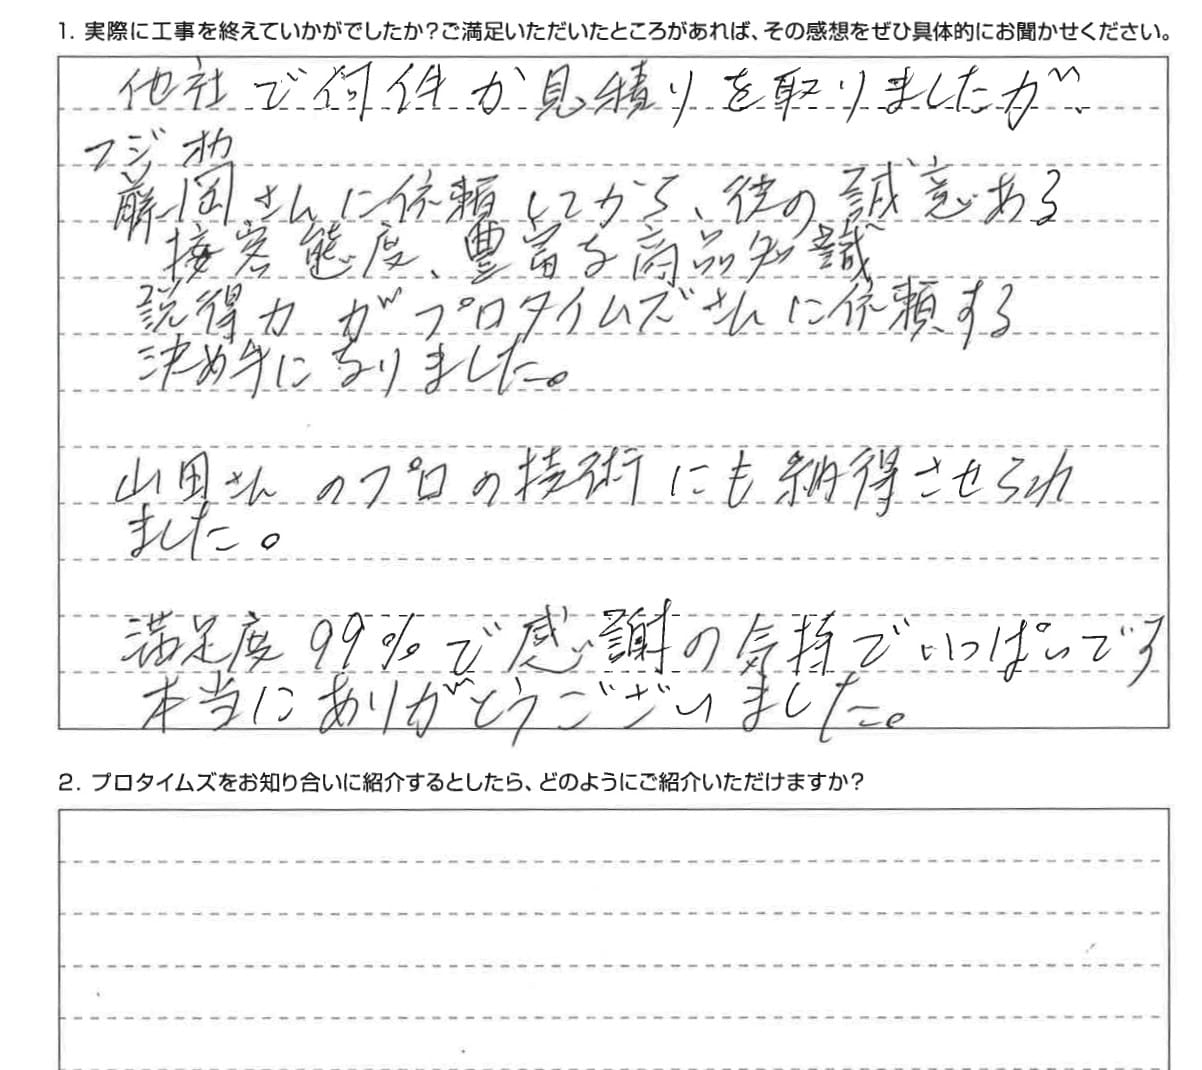 1. 実際に工事を終えていかがでしたか?ご満足いただいたところがあれば、その感想をぜひ具体的にお聞かせください。
他社で何件か見積りを取りましたが、
フジオカ
藤岡さんに依頼してから、彼の誠意ある
接客態度、豊富な商品知識
説得力がプロタイムズさんに依頼する
決め手になりました。
山田さんのプロの技術にも納得させられ
ました。
満足度99%で感謝の気持でいっぱいです
本当にありがとうございました。
2. プロタイムズをお知り合いに紹介するとしたら、どのようにご紹介いただけますか?